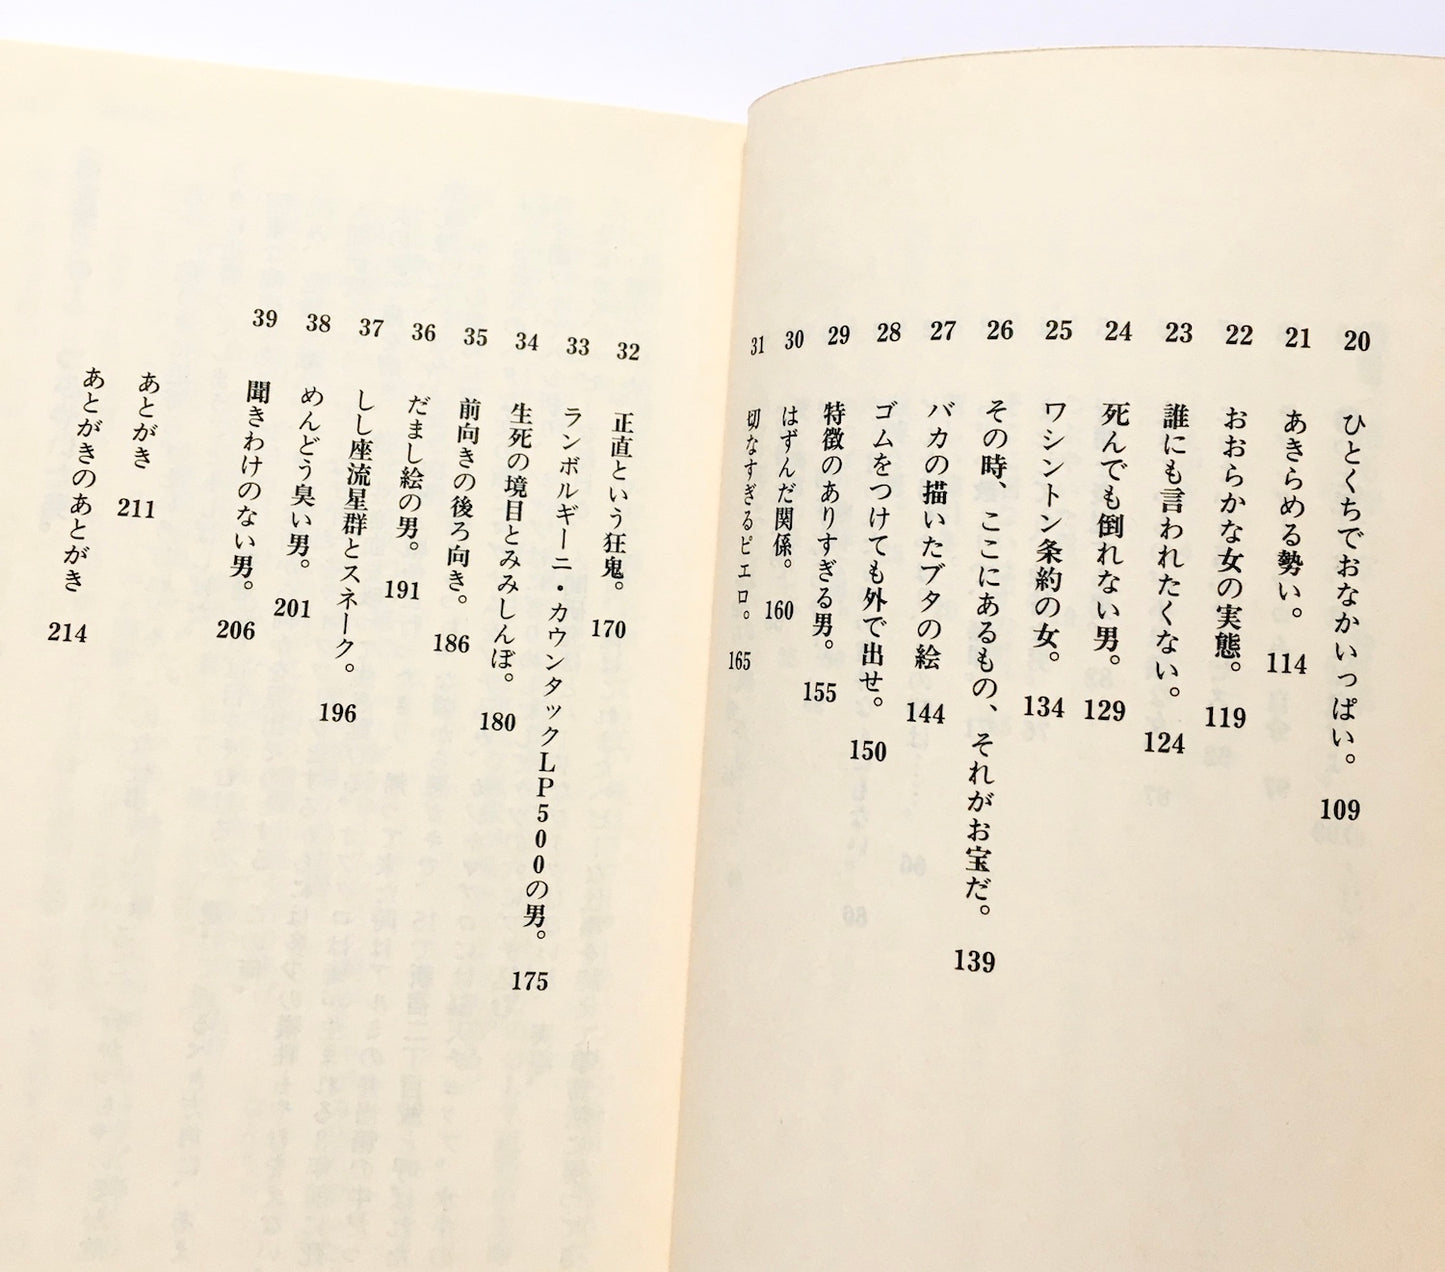 20 ひとくちでおなかいっぱい。 109
21 あきらめる勢い。 114
22 おおらかな女の実態。 119
23 誰にも言われたくない。 124
24 死んでも倒れない男。 129
25 ワシントン条約の女。 134
26 その時、ここにあるもの、それがお宝だ。 139
27 バカの描いたブタの絵 144
28 ゴムをつけても外で出せ。 150
29 特徴のありすぎる男。 155
30 はずんだ関係。 160
31 切なすぎるピエロ。 165
32 正直という狂鬼。 170
33 ランボルギーニ・カウンタックLP500の男。 175
34 生死の境目とみみしんぼ。 180
35 前向きの後ろ向き。 186
36 だまし絵の男。 191
37 しし座流星群とスネーク。 196
38 めんどう臭い男。 201
39 聞きわけのない男。 206
あとがき 211
あとがきのあとがき 214